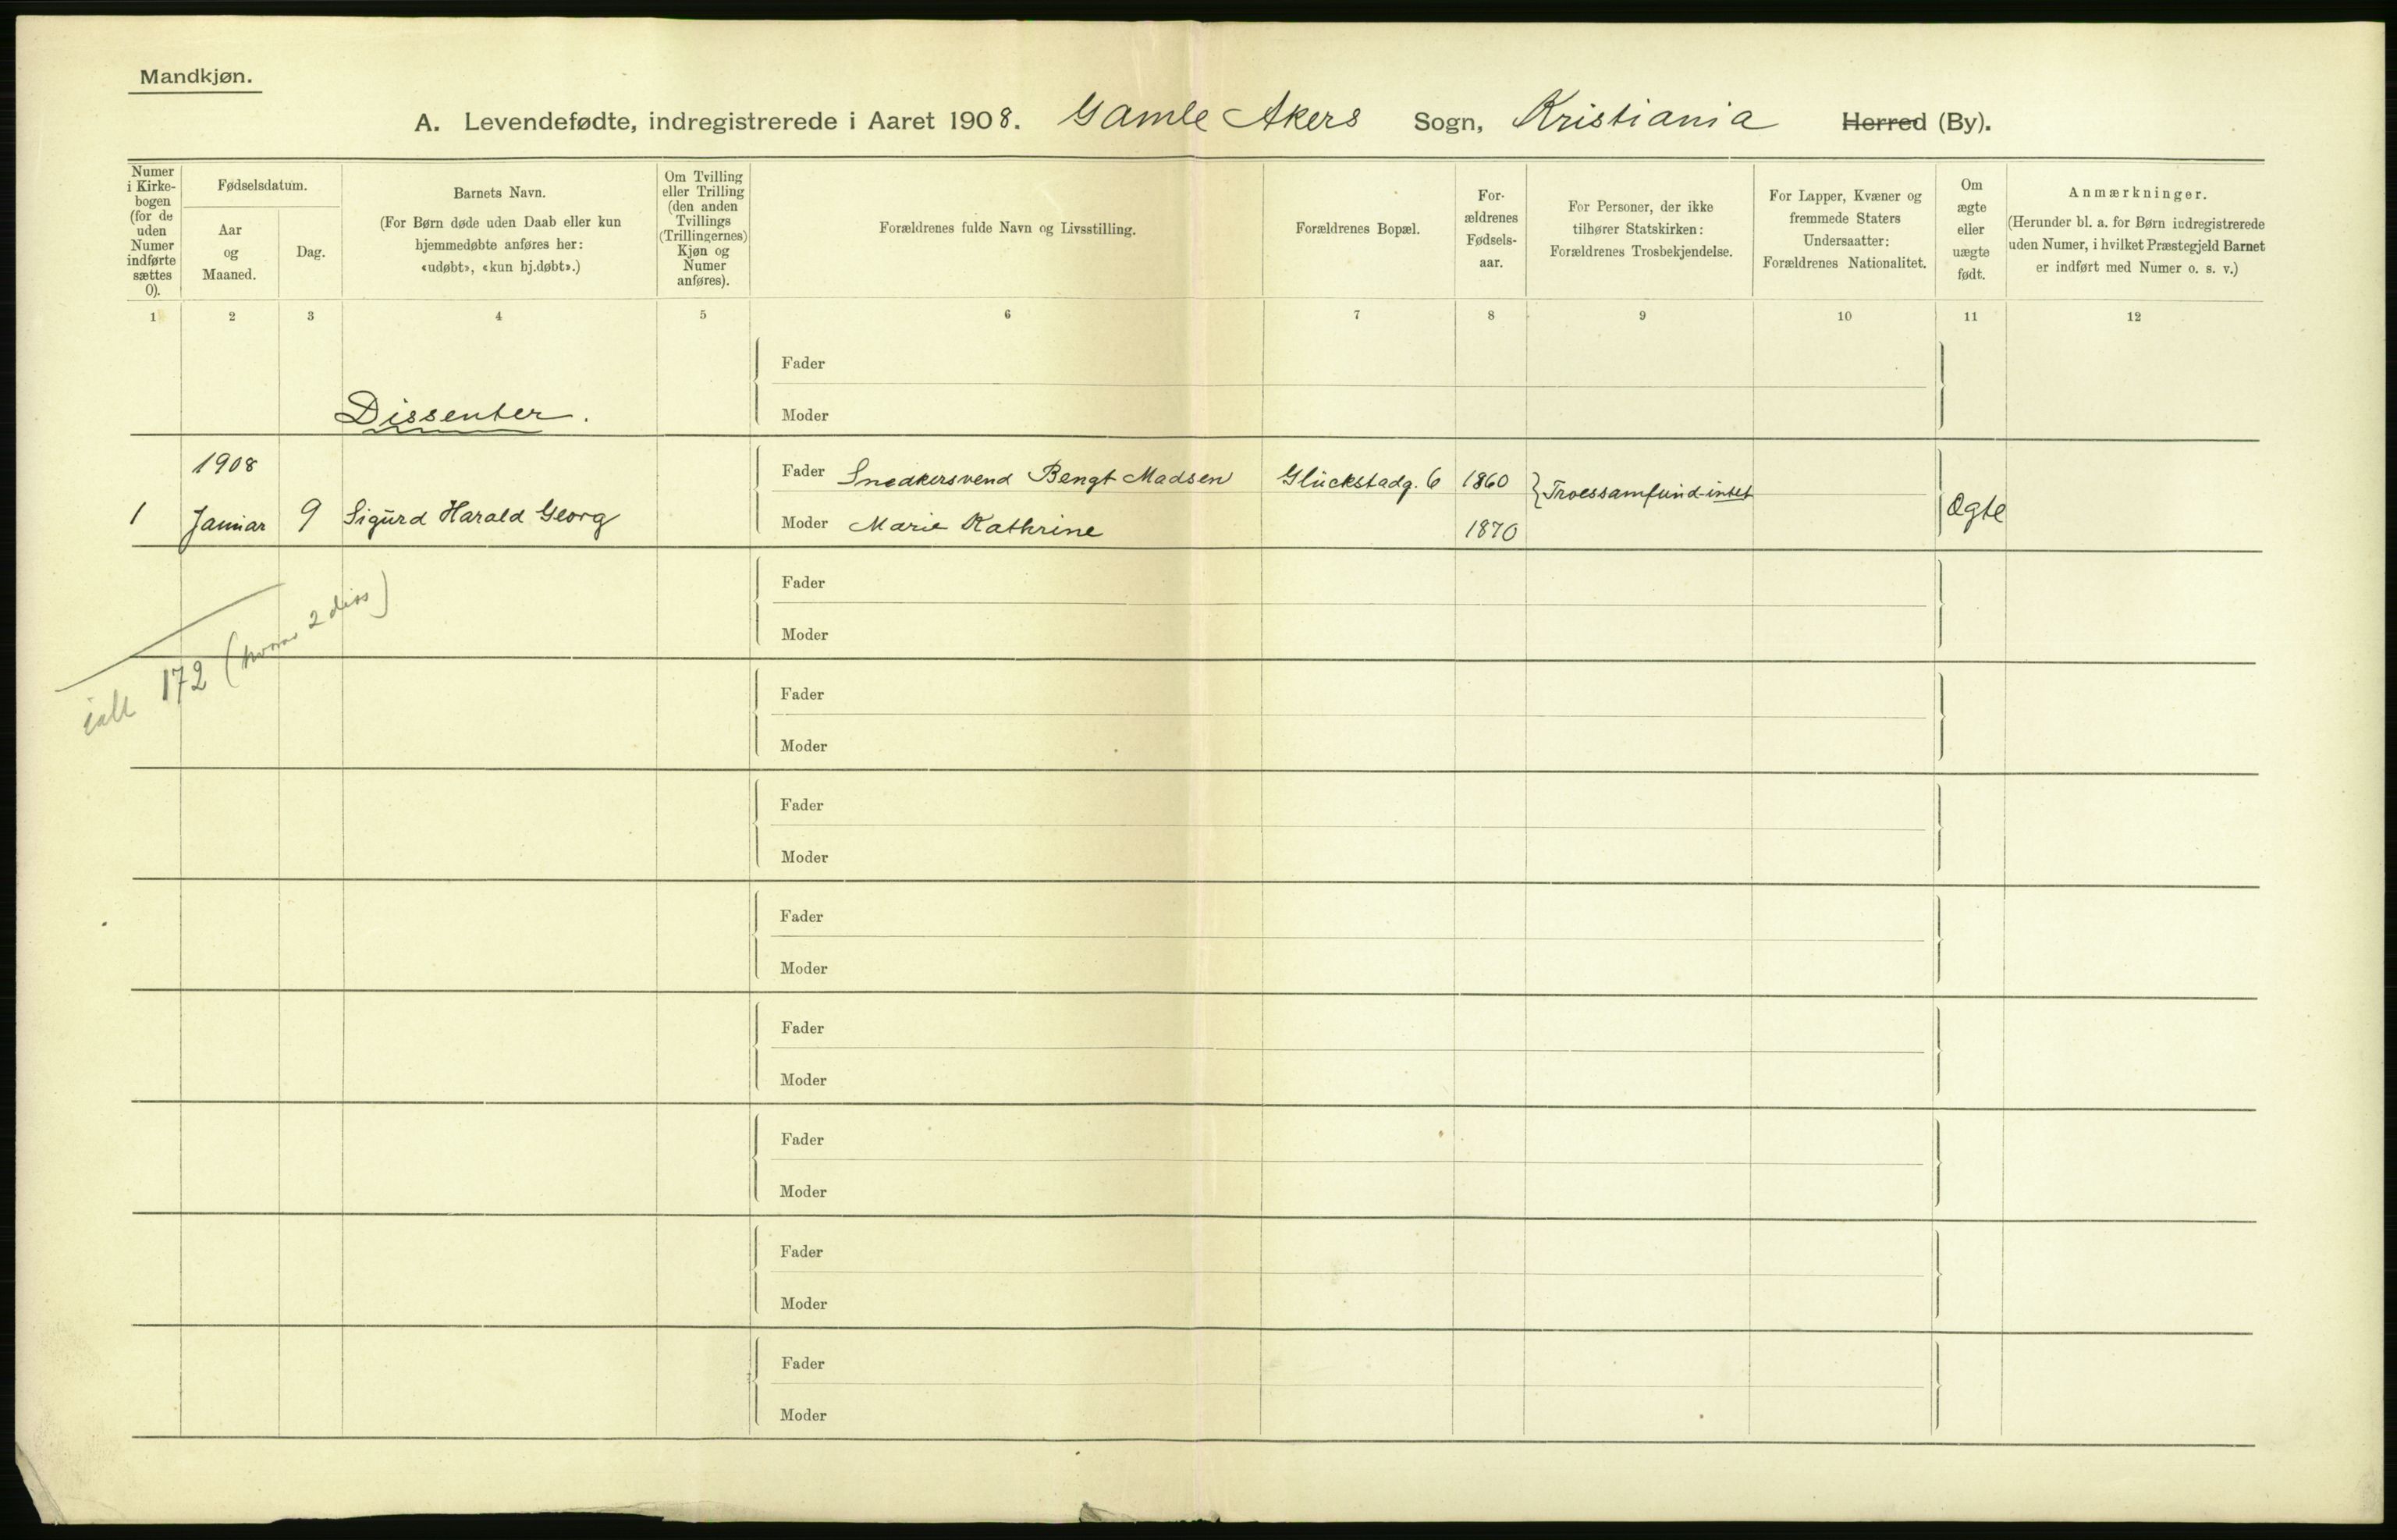 Mandkjøn.
A. Levendefødte, indregistrerede i Aaret 1908. Gamle Akers Sogn, Kristiania Herred (By).
Numer
i Kirke-
bogen
(for de
uden
Numer
indførte
sættes
0).
Fødselsdatum.
Aar
og
Maaned.
Dag.
Barnets Navn.
(For Børn døde uden Daab eller kun
hjemmedøbte anføres her:
«udøbt», «kun hj.døbt».)
Om Tvilling
eller Trilling
(den anden
Tvillings
(Trillingernes)
Kjøn og
Numer
anføres).
Forældrenes fulde Navn og Livsstilling.
Forældrenes Bopæl.
For-
ældrenes
Fødsels-
aar.
For Personer, der ikke
tilhører Statskirken:
Forældrenes Trosbekjendelse.
For Lapper, Kvæner og
fremmede Staters
Undersaatter:
Forældrenes Nationalitet.
Om
ægte
eller
uægte
født.
Anmærkninger.
(Herunder bl. a. for Børn indregistrerede
uden Numer, i hvilket Præstegjeld Barnet
er indført med Numer o. s. v.)
1 2 3 4 5 6 7 8 9 10 11 12
Fader
Dissenter. Moder
1908 Fader Snedkersvend Bengt Madsen Glückstadg. 6 1860 Troessamfund-intet
1 Januar 9 Sigurd Harald Georg Moder Marie Kathrine 1870 Ægte
Fader
Moder
ialt 172 (hvorav 2 diss)
Fader
Moder
Fader
Moder
Fader
Moder
Fader
Moder
Fader
Moder
Fader
Moder
Fader
Moder